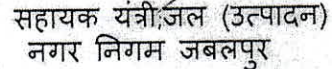 सहायक यंत्री,जल (उत्पादन)
नगर निगम जबलपुर